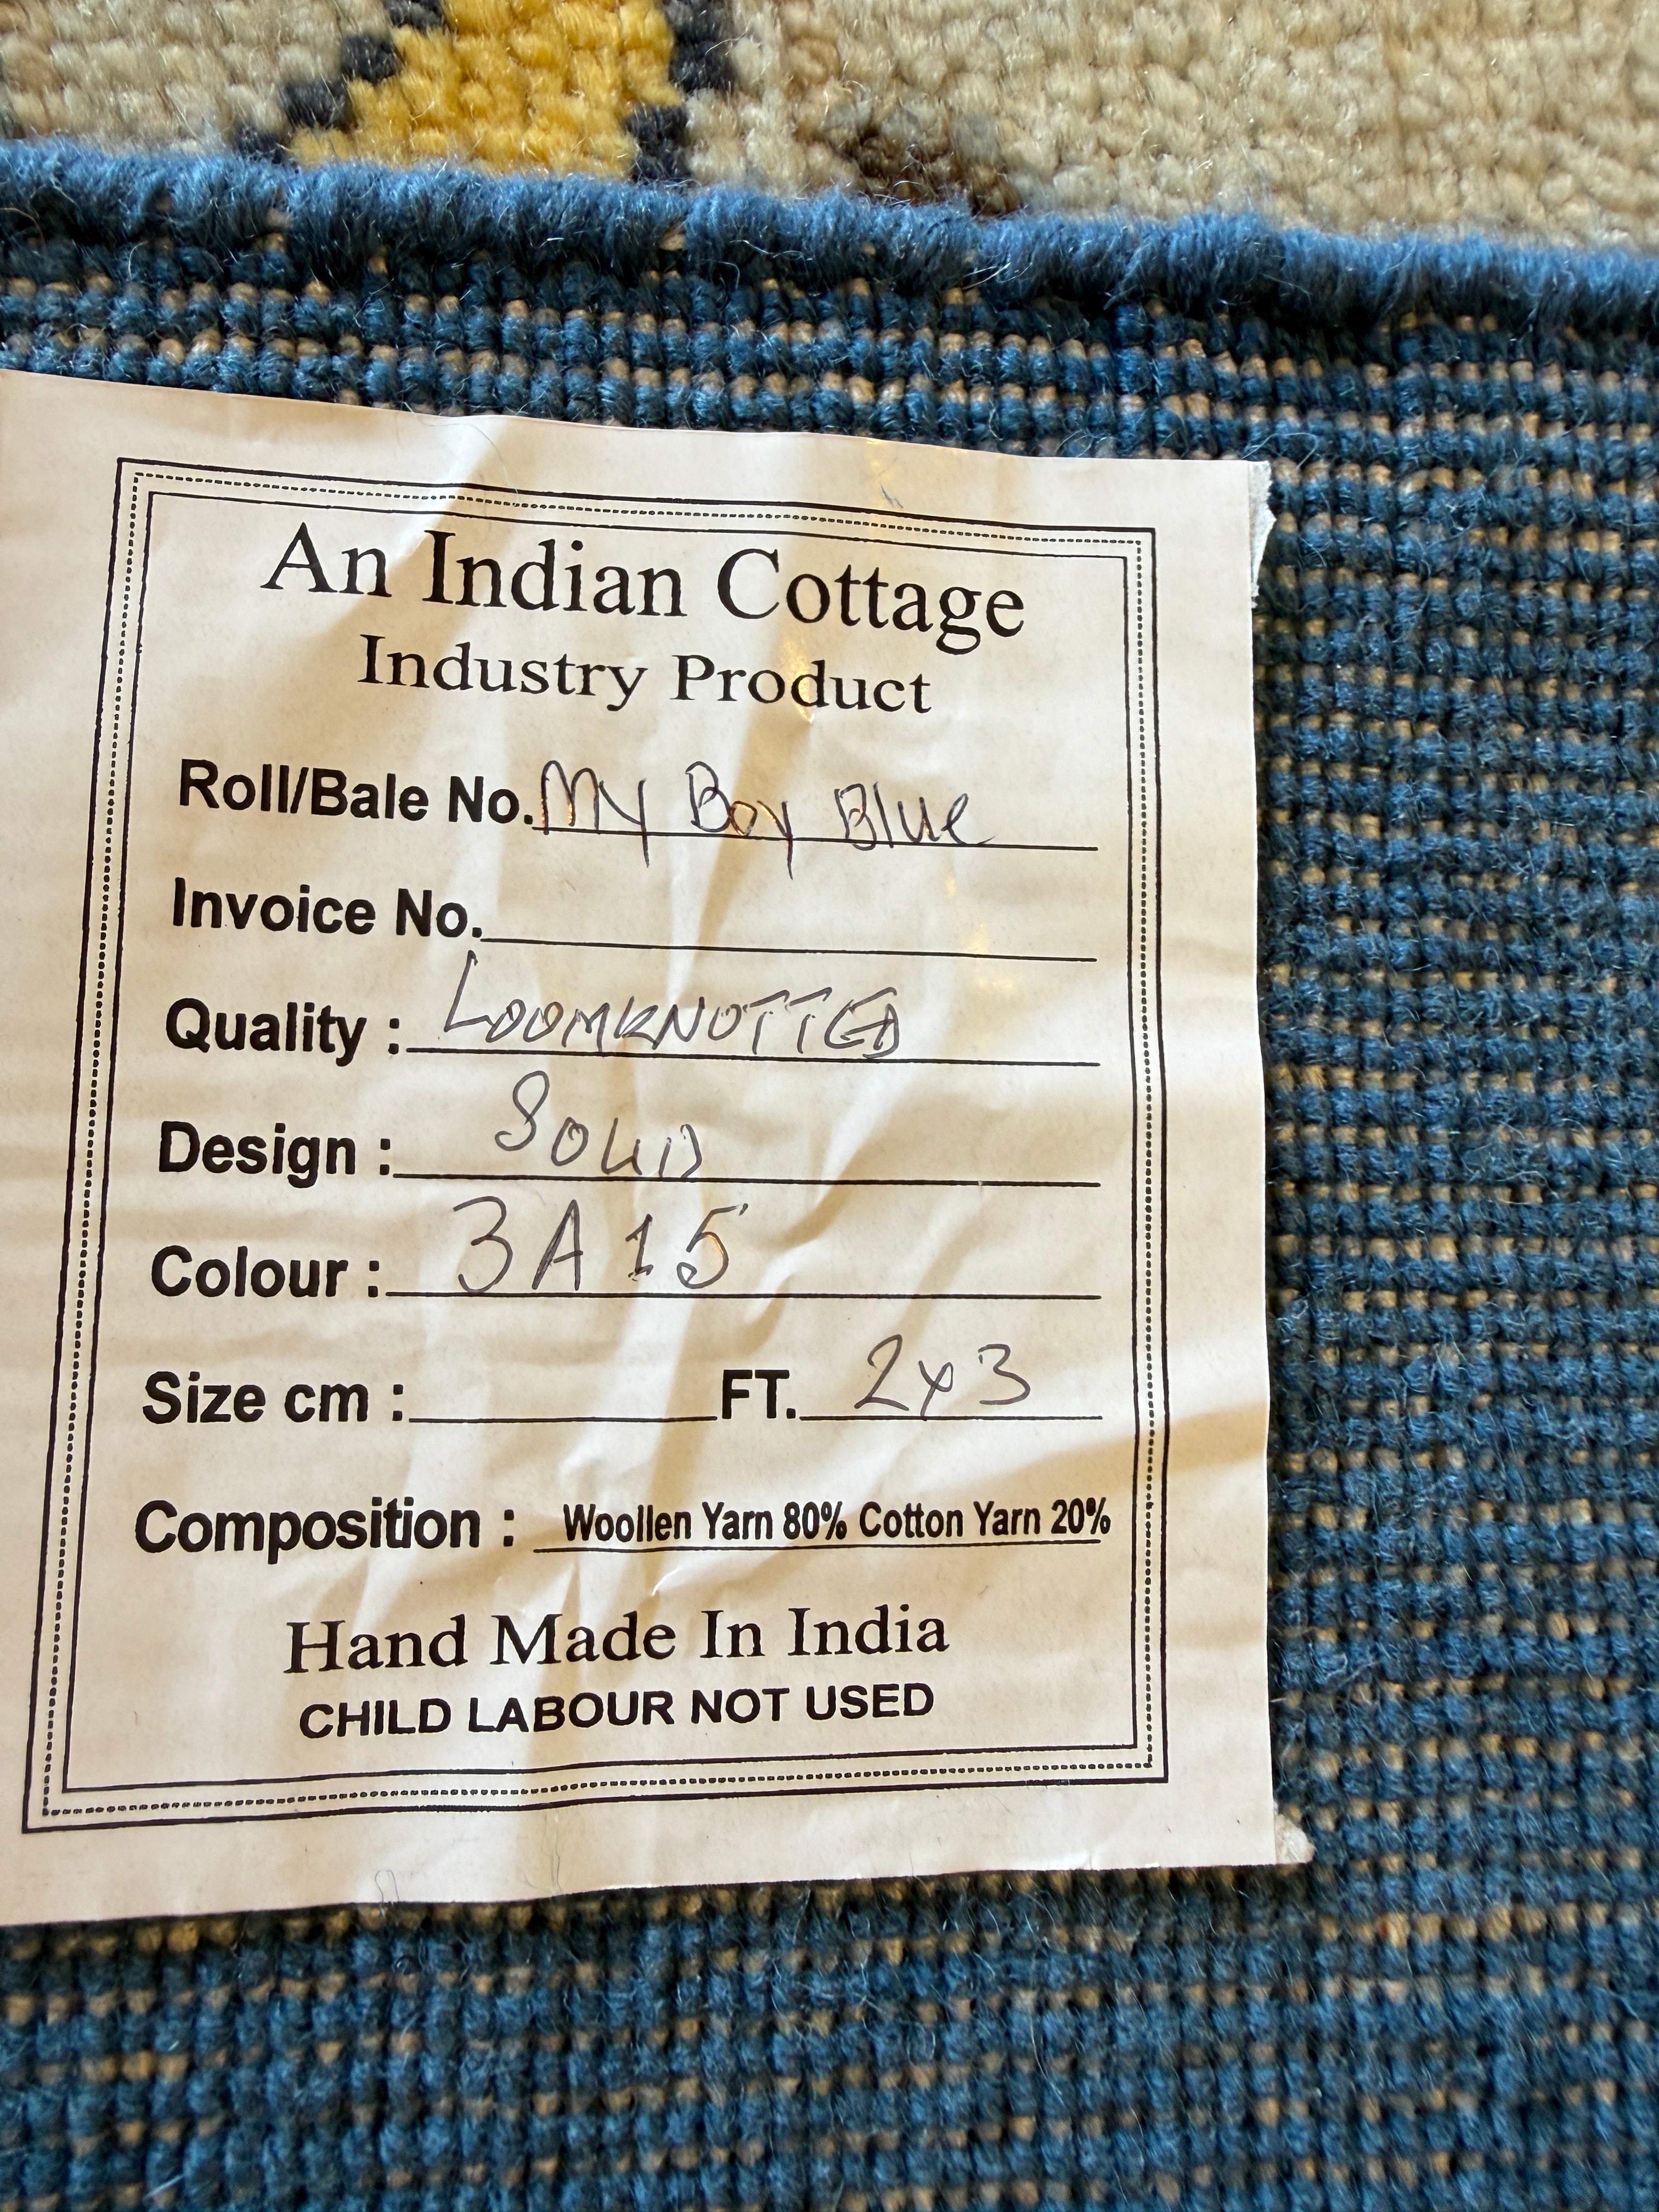 An Indian Cottage
Industry Product
Roll/Bale No. My Boy Blue
Invoice No.
Quality : LOOMKNOTTED
Design : SOLID
Colour : 3A15
Size cm : FT. 2x3
Composition : Woollen Yarn 80% Cotton Yarn 20%
Hand Made In India
CHILD LABOUR NOT USED